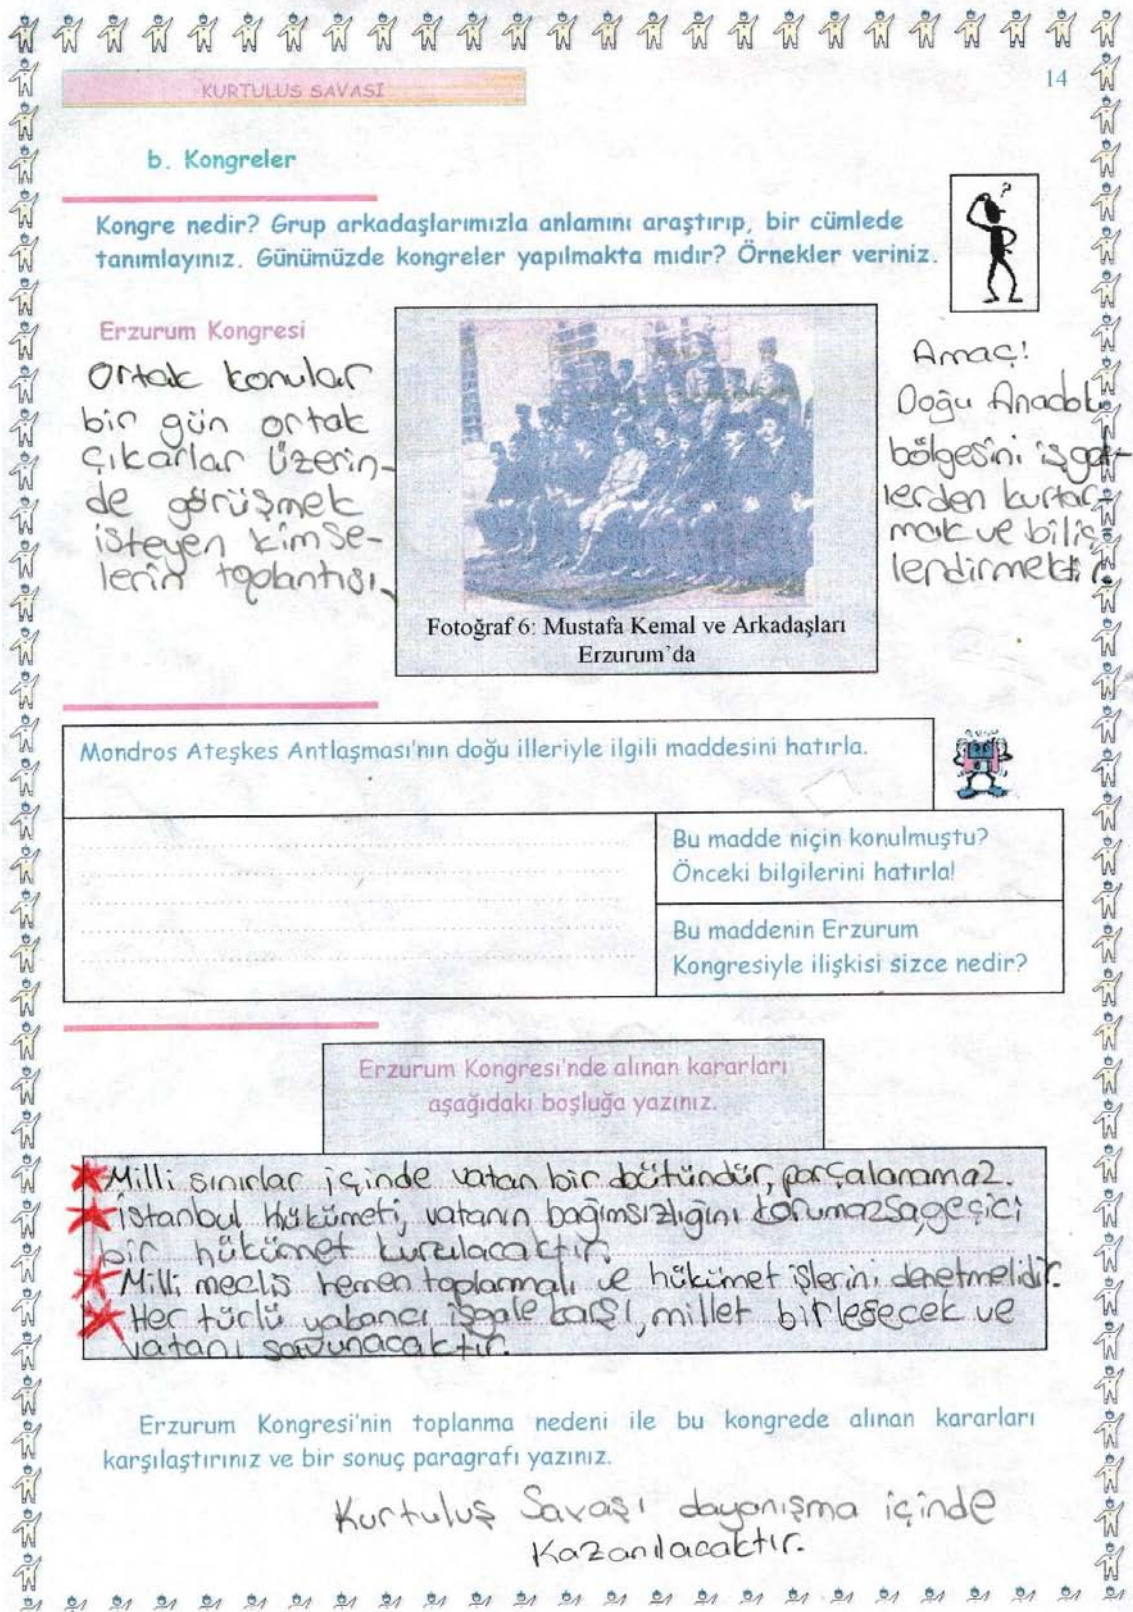 KURTULUS SAVASI
14
b. Kongreler
Kongre nedir? Grup arkadaşlarımızla anlamını araştırıp, bir cümlede
tanımlayınız. Günümüzde kongreler yapılmakta mıdır? Örnekler veriniz.
?
Erzurum Kongresi
Ortak konular
bir gün ortak
çıkarlar üzerin-
de görüşmek
isteyen kimse-
lerin toplantısı.
Fotoğraf 6: Mustafa Kemal ve Arkadaşları
Erzurum'da
Amaç!
Doğu Anadolu
bölgesini işgal-
lerden kurtar-
mak ve biliç-
lendirmektir.
Mondros Ateşkes Antlaşması'nın doğu illeriyle ilgili maddesini hatırla.
Bu madde niçin konulmuştu?
Önceki bilgilerini hatırla!
Bu maddenin Erzurum
Kongresiyle ilişkisi sizce nedir?
Erzurum Kongresi'nde alınan kararları
aşağıdaki boşluğa yazınız.
Milli sınırlar içinde vatan bir bütündür, parçalanamaz.
İstanbul Hükümeti, vatanın bağımsızlığını korumazsa geçici
bir hükümet kurulacaktır.
Milli meclis hemen toplanmalı ve hükümet işlerini denetmelidir.
Her türlü yabancı işgale karşı, millet birleşecek ve
vatanı savunacaktır.
Erzurum Kongresi'nin toplanma nedeni ile bu kongrede alınan kararları
karşılaştırınız ve bir sonuç paragrafı yazınız.
Kurtuluş Savaşı dayanışma içinde
Kazanılacaktır.